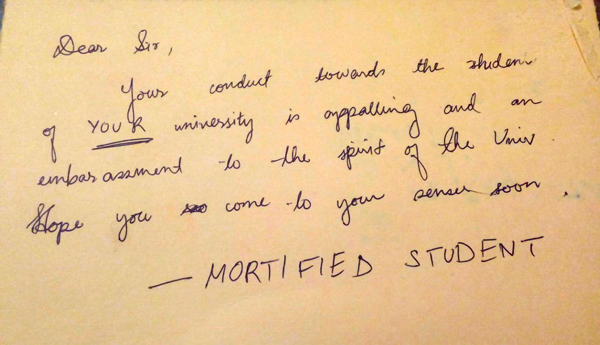 Dear Sir,
Your conduct towards the student
of YOUR university is appalling and an
embarassment to the spirit of the Univ.
Hope you come to your senses soon.
— MORTIFIED STUDENT